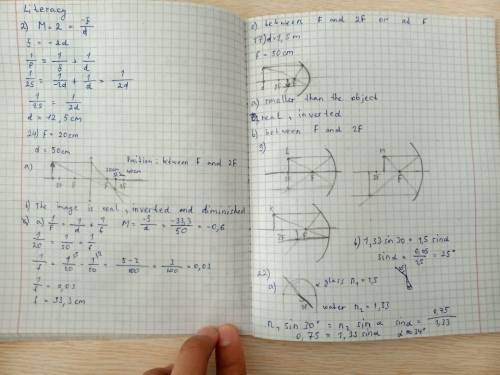 Literacy
2) M = 2 = -f/d
f = -2d
1/F = 1/f + 1/d
1/25 = 1/-2d + 1/d = 1/2d
1/25 = 1/2d
d = 12,5cm
24) f = 20cm
d = 50cm
Position: between F and 2F
a)
2F F F 2F
b) The image is real, inverted and diminished
a) 1/F = 1/d + 1/f M = -f/d = -33,3/50 = -0,6
1/20 = 1/50 + 1/f
1/f = 1/20 - 1/50 = 5-2/100 = 3/100 = 0,03
1/f = 0,03
f = 33,3cm
c) between F and 2F or at F
17) d = 1,5m
f = 50cm
a) smaller than the object
real, inverted
b) between F and 2F
3)
L M
2F F 2F F
K
2F F
b) 1,33 sin 30 = 1,5 sinα
sinα = 0,65/1,5 = 25°
22)
a) glass n1 = 1,5
water n2 = 1,33
n1 sin 30° = n2 sin α sinα = 0,75/1,33
0,75 = 1,33 sinα α ≈ 34°